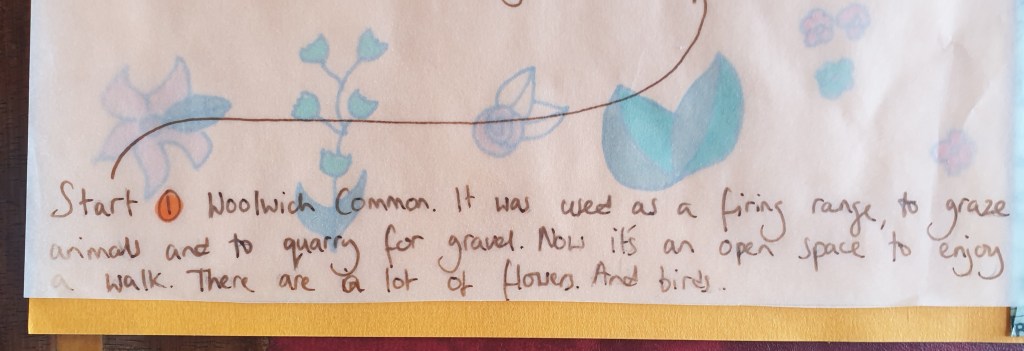 Start 1 Woolwich Common. It was used as a firing range, to graze
animals and to quarry for gravel. Now it's an open space to enjoy
a walk. There are a lot of flowers. And birds.